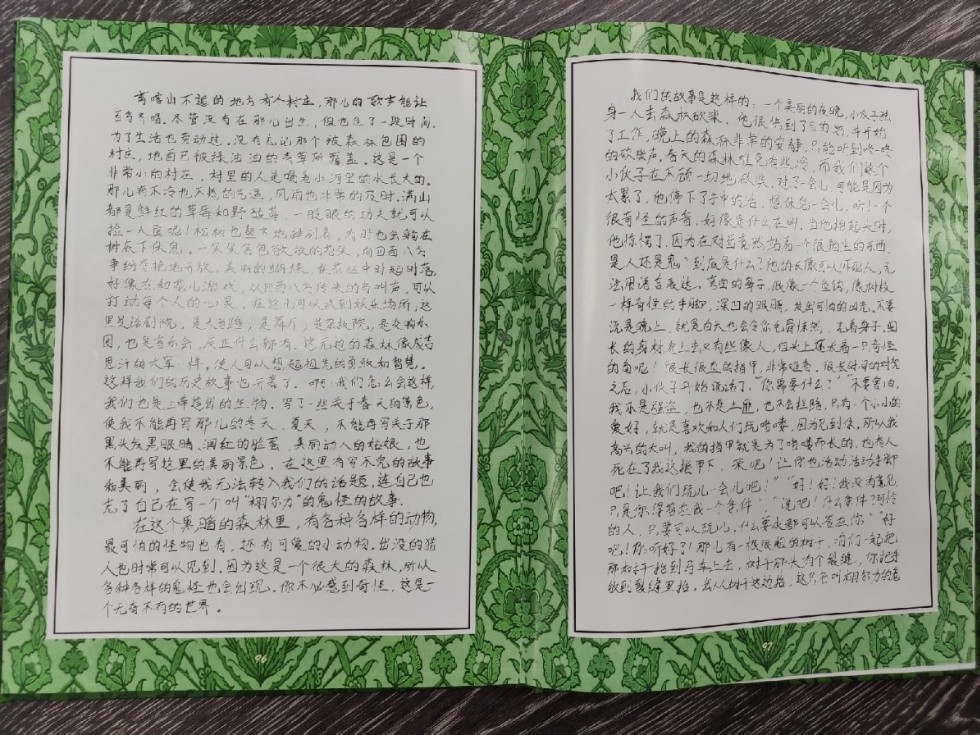 离喀山不远的地方有个村庄，那儿的歌声能让
百鸟歌唱。尽管没有在那儿出生，但也住了一段时间，
为了生活也劳动过。没有忘记那个被森林包围的
村庄，地面已被绿油油的青草所覆盖，这是一个
非常小的村庄，村里的人是喝着小河里的水长大的。
那儿有不冷也不热的气温，风雨也非常的及时。满山
都是鲜红的草莓和野故莓，一眨眼的功夫就可以
捡一小筐呢！松树也整齐地排列着，有时也会躺在
树底下休息。一朵朵含包欲放的花朵，向四面八方
争纷夺艳地开放，美丽的蝴蝶，在花丛中时起时落，
好像在和花儿游戏，从四面八方传来的鸟叫声，可以
打动每个人的心灵。在这儿可以达到娱乐场所，这
里是话剧院，是大剧院，是舞厅，是 院，是交响乐
团，也是音乐会，反正什么都有。这无边的森林像成吉
思汗的大军一样。使人可以想起祖先的勇敢和智慧。
这样我们的历史故事也开幕了。啊！我们怎么会这样，
我们也是上帝造出的生物。写了一些关于春天的景色，
使我不能再写那儿的冬天、夏天，不能再写关于那
黑头发黑眼睛、润红的脸蛋、美丽动人的姑娘，也
不能再写这里的美丽景色。在这里有写不完的故事
和美丽，会使我无法转入我们的话题，连自己也
忘了自己在写一个叫“树尔力”的鬼怪的故事。
在这个黑暗的森林里，有各种各样的动物，
最可怕的怪物也有，还有可爱的小动物。出没的猎
人也时常可以见到。因为这是一个很大的森林，所以
各种各样的鬼怪也会出现。你不必感到奇怪，这是一
个无奇不有的世界。
96
我们的故事是这样的：一个美丽的夜晚，小伙子独
身一人去森林砍柴。他很快到了目的地，并开始
了工作。晚上的森林非常的安静，只能听到咚咚
的砍柴声，春天的森林难免有些冷，而我们这个
小伙子在不顾一切地砍柴。过了一会儿，可能是因为
太累了，他停下了手中的活，想休息一会儿。听！一个
很奇怪的声音，好像是什么在叫，当他抬起头时，
他惊愕了，因为在对面竟然站着一个很陌生的东西，
是人还是鬼？到底是什么？他的长像真以吓死人，无
法用语言表达。弯曲的鼻子，很像一个鱼钩，像树枝
一样奇怪的手脚，深凹的眼睛，发出可怕的凶光，不要
说是晚上，就是白天也会令你毛骨悚然，光着身子，细
长的身材看上去又有些像人，但头上还长着一只奇怪
的角呢！很长很直的指甲，非常难看。很长时间的对视
之后，小伙子开始说话了。“你需要什么？”“不要害怕，
我不是强盗，也不是土匪，也不会拦路，只有一个小小的
爱好，就是喜欢和人们玩咯喽。因为见到你，所以我
高兴的大叫，我的指甲就是为了咯喽而长的，也有人
死在了我这指甲下，来吧！让你也活动活动手脚
吧！让我们玩儿一会儿吧！”“好！好！我没有意见，
只是你得答应我一个条件。”“说吧！什么条件？可怜
的人，只要可以玩儿，什么要求都可以答应你。”“好
吧！你听好了！那儿有一根很粗的树干，咱们一起把
那树干抬到马车上去，树干那头有个裂缝，你把手
放到裂缝里抬，我从树干这边抬，这只名叫树尔力的鬼
97